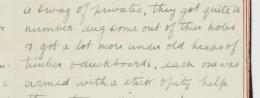 a swag of privates, they got quite a
number dug some out of their holes
& got a lot more under old heaps of
timber & duckboards, each one was
armed with a stick & pity help